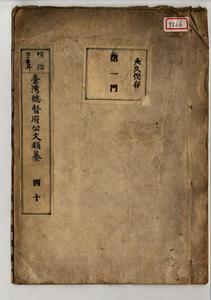 9566
永久保存
第一門
明治
臺灣總督府公文類纂
四十